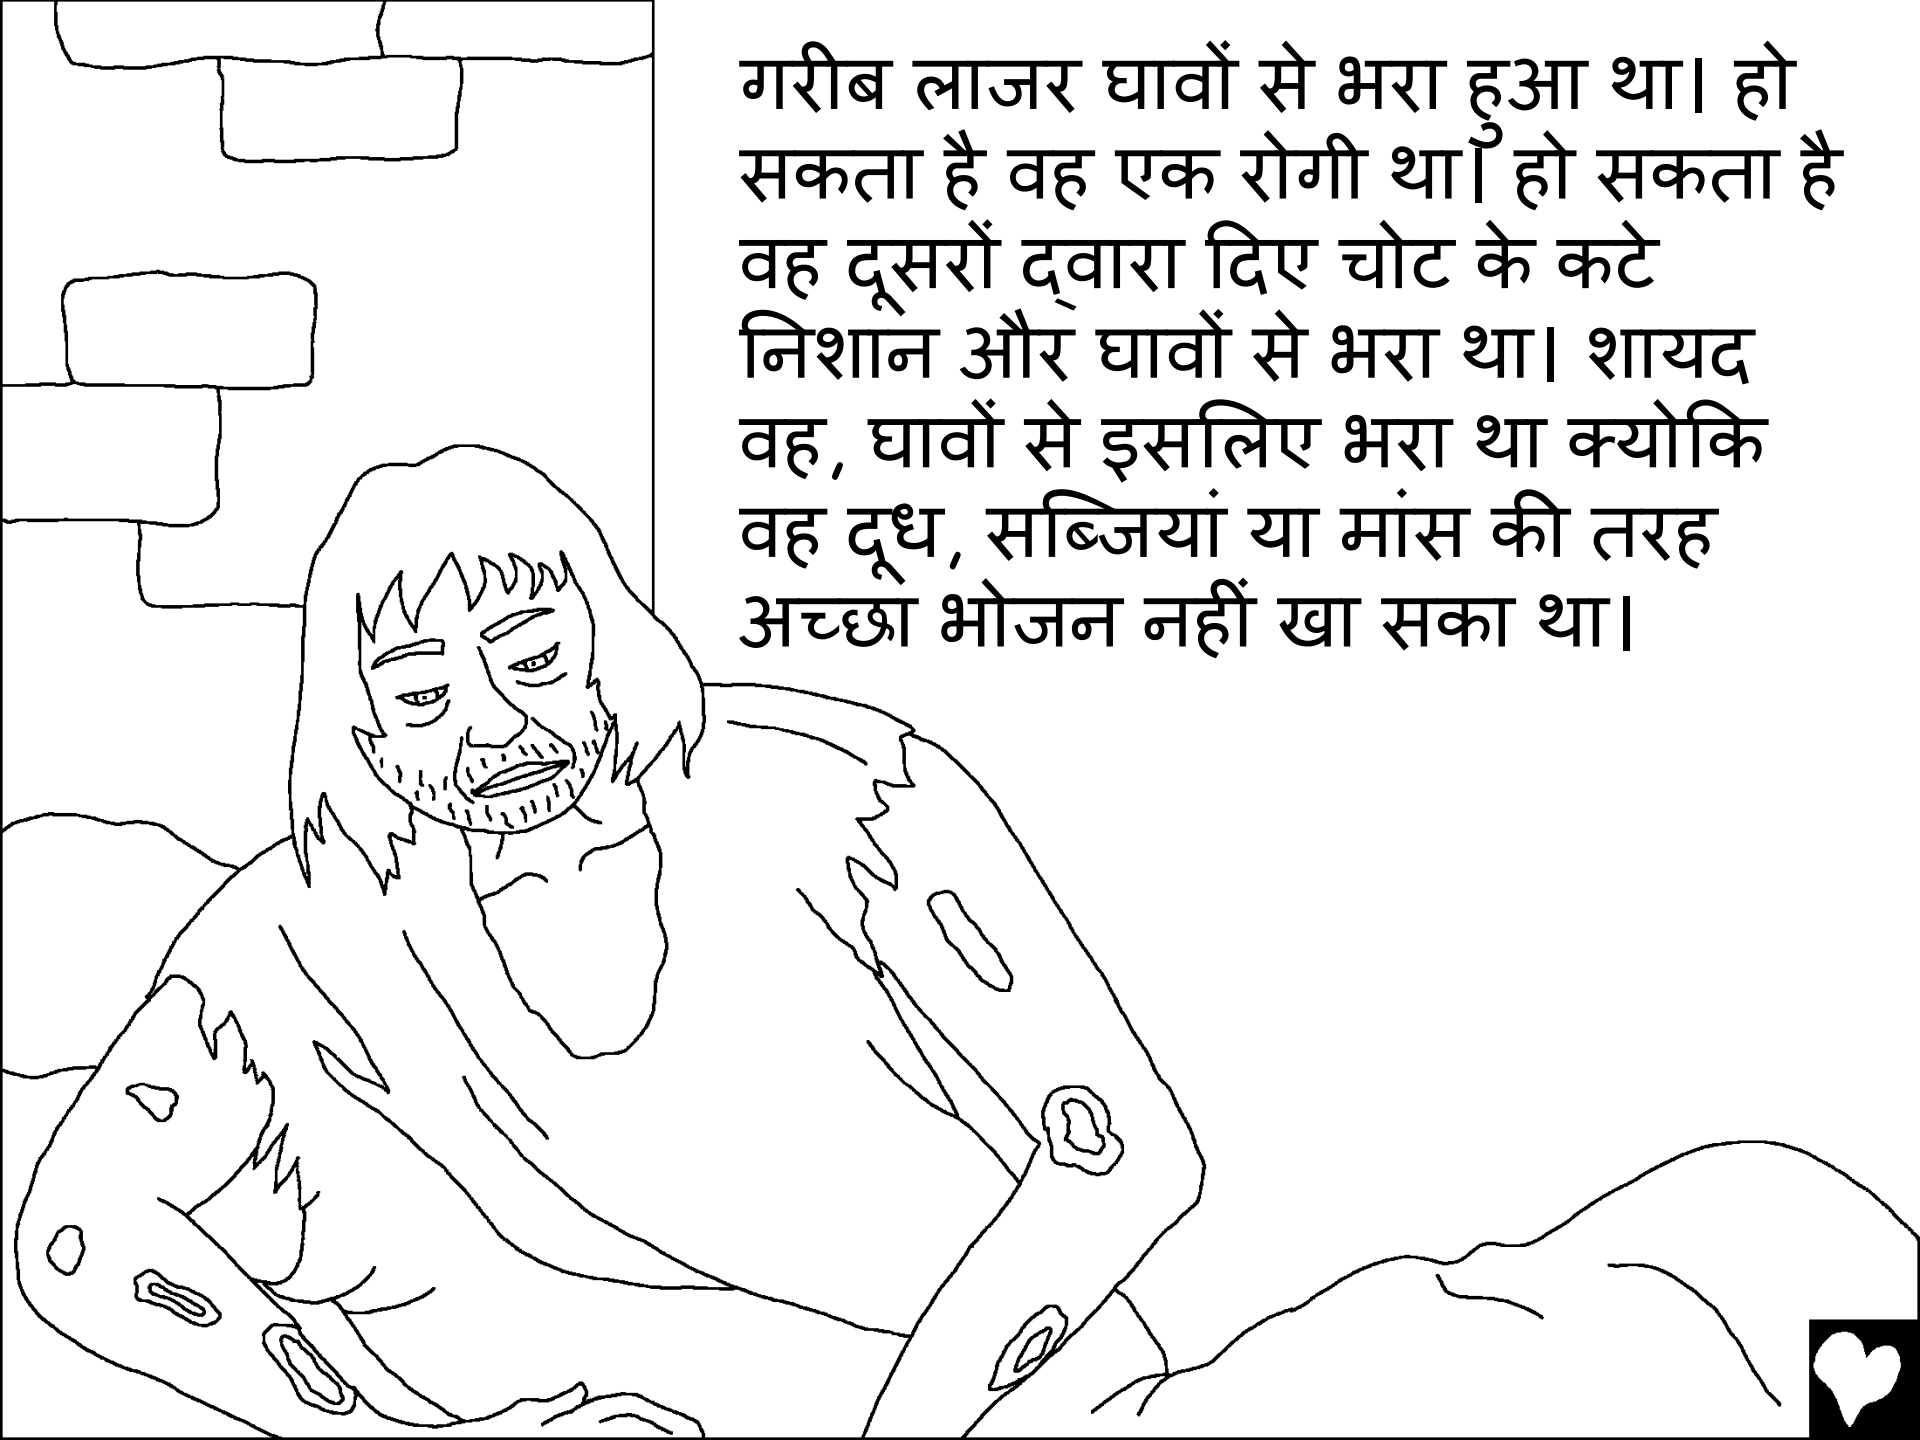 गरीब लाजर घावों से भरा हुआ था। हो
सकता है वह एक रोगी था। हो सकता है
वह दूसरों द्वारा दिए चोट के कटे
निशान और घावों से भरा था। शायद
वह, घावों से इसलिए भरा था क्योकि
वह दूध, सब्जियां या मांस की तरह
अच्छा भोजन नहीं खा सका था।